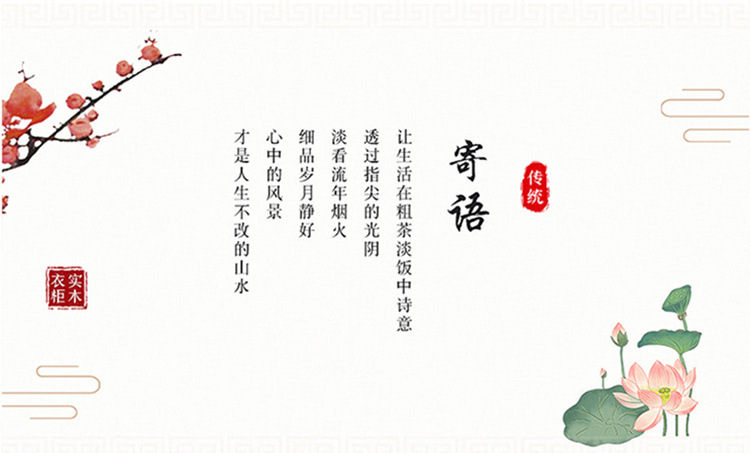 传统
寄语
让生活在粗茶淡饭中诗意
透过指尖的光阴
淡看流年烟火
细品岁月静好
心中的风景
才是人生不改的山水
实木
衣柜